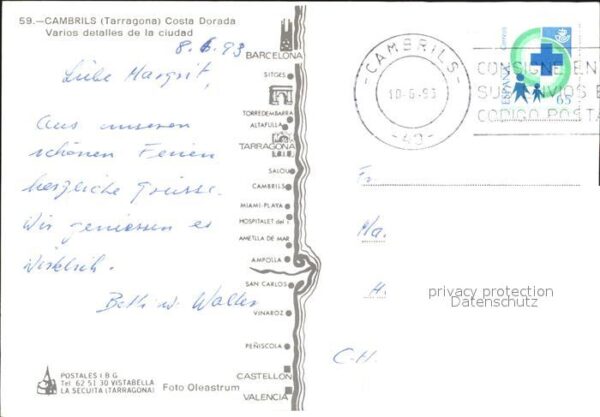 59.—CAMBRILS (Tarragona) Costa Dorada
Varios detalles de la ciudad
8.6.93
Liebe Margrit,
Aus unseren
schönen Ferien
herzliche Grüsse.
Wir geniessen es
wirklich.
Beth u. Walter
BARCELONA
SITGES
TORREDEMBARRA
ALTAFULLA
TARRAGONA
SALOU
CAMBRILS
MIAMI-PLAYA
HOSPITALET del I.
AMETLLA DE MAR
AMPOLLA
SAN CARLOS
VINAROZ
PEÑISCOLA
CASTELLON
VALENCIA
POSTALES I B G
Tel. 62 51 30 VISTABELLA
LA SECUITA (TARRAGONA)
Foto Oleastrum
-CAMBRILS-
10-6-93
-49-
CONSIGNE EN
SUS ENVIOS E
CODIGO POSTA
ESPAÑA
Correos
65
Fr.
Ma.
H.
CH.
privacy protection
Datenschutz